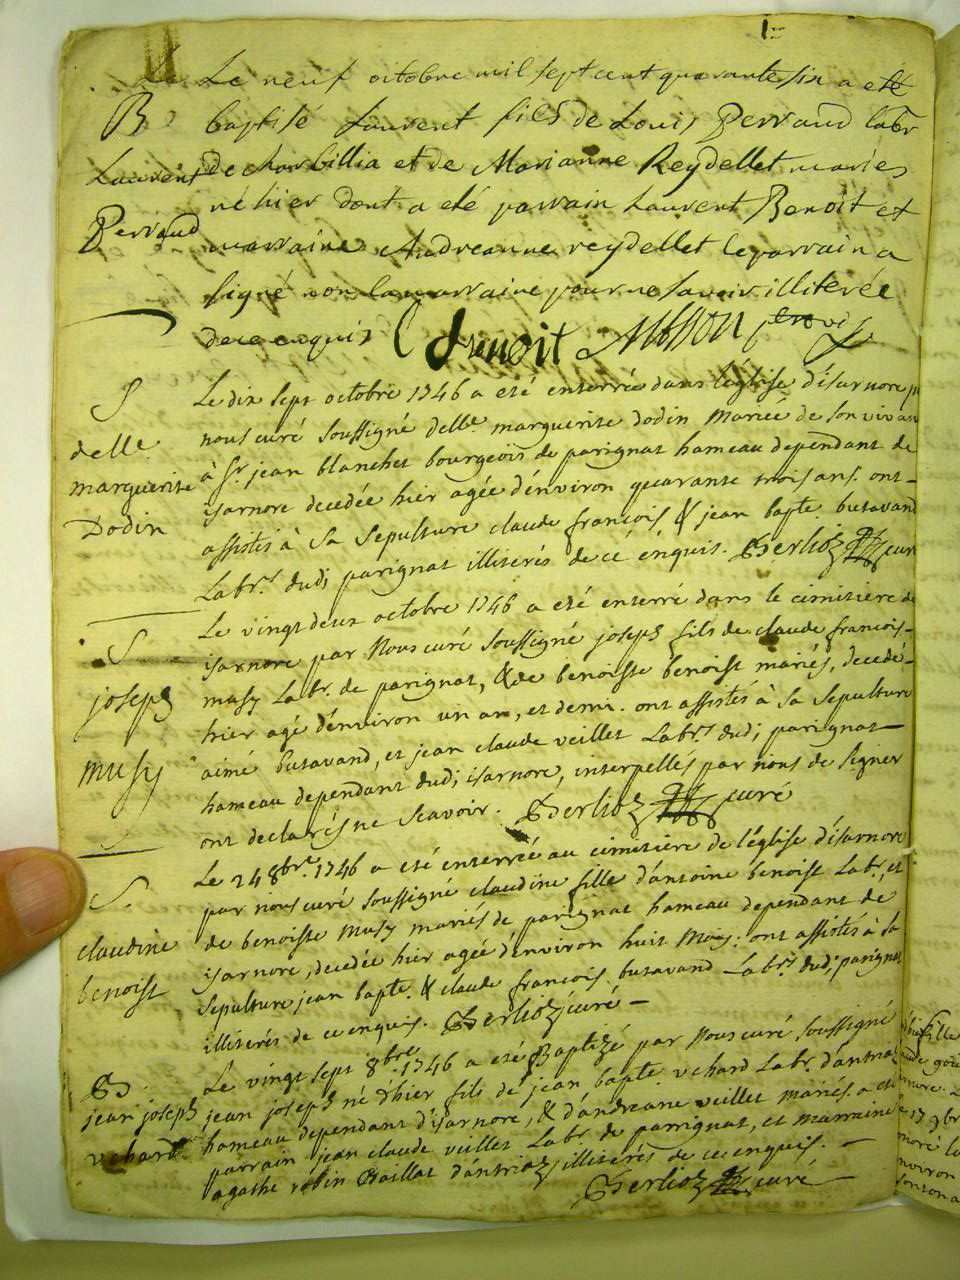 Le neuf octobre mil sept cent quarante six a eté
B
baptisé Laurent fils de Louis Perraud labr
Laurent
de charbillia et de Marianne Reydellet mariés
né hier dont a eté parrain Laurent Benoit et
Perraud
marraine Andreanne reydellet le parrain a
signé non la marraine pour ne savoir illiterée
de ce enquis Benoit
Le dix sept octobre 1746 a eté enterrée dans l'église d'isarnore
S
delle
marguerite
Dodin
nous curé soussigné delle. marguerite dodin Mariée de son vivant
à Sr. jean blanchet bourgeois de parignat hameau dependant de
isarnore decedée hier agée d'environ quarante trois ans. ont
assistés à sa sepulture claude françois & jean bapte. butavand
Labrs. dudi parignat illiterés de cé énquis. Berlioz curé
Le vingt deux octobre 1746 a eté enterré dans le cimitiere de
S
joseph
musy
isarnore par Nous curé soussigné joseph fils de claude francois
musy Labr. de parignat, & de benoiste benoist mariés, decedé
hier agé d'environ un an, et demi. ont assistés à sa sepulture
aimé butavand, et jean claude veillet Labrs dudi parignat
hameau dependant dudi isarnore, interpellés par nous de signer
ont declarés ne scavoir. Berlioz curé
Le 24 8bre. 1746 a eté enterrée au cimitiére de l'église d'isarnore
S.
claudine
benoist
par nous curé soussigné claudine fille d'antoine benoist Labr, et
de benoiste Musy mariés de parignat hameau dependant de
isarnore, decedée hier agée d'environ huit Mois: ont assistés à sa
sepulture jean bapte. & claude francois butavand Labrs dudi parignat
illiterés de ce enquis. Berlioz curé
B.
jean joseph
uchard
Le vingt sept 8bre. 1746 a eté Baptizé par Nous curé soussigné
jean joseph né d'hier fils de jean bapte uchard Labr. d'antriaz
hameau dependant d'isarnore, & d'andreane veillet mariés. a eté
parrain jean claude veillet Labr. de parrignat, et marraine
agathe robin Baillat d'antriaz, illiterés de ce enquis.
Berlioz curé